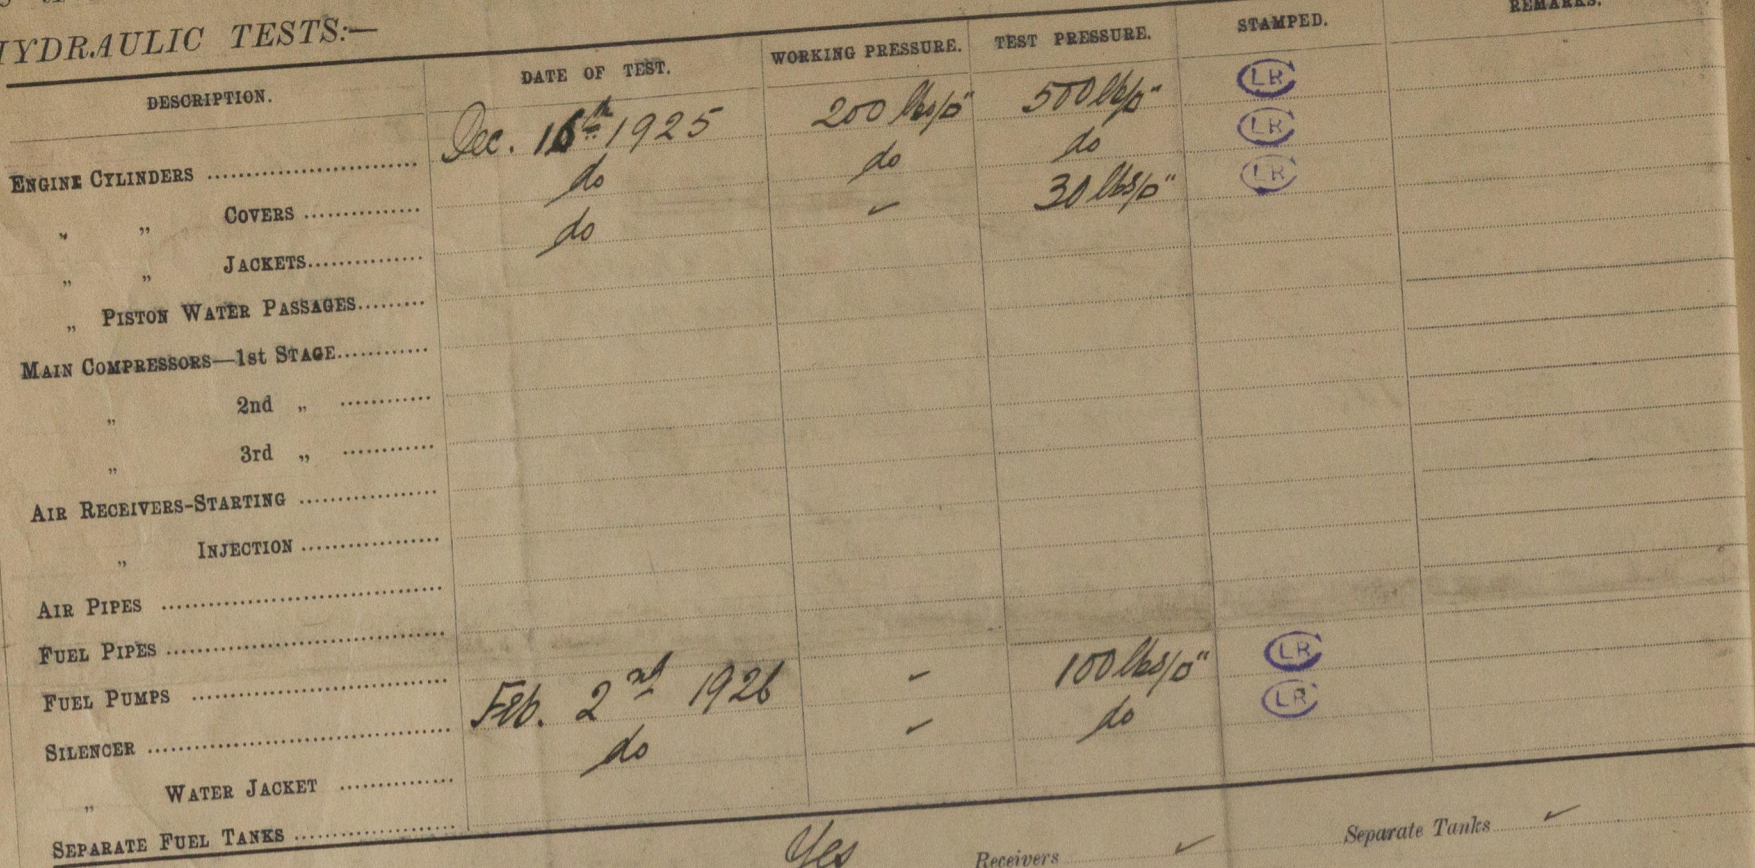 HYDRAULIC TESTS:—
DESCRIPTION. DATE OF TEST. WORKING PRESSURE. TEST PRESSURE. STAMPED. REMARKS.
ENGINE CYLINDERS .......... Dec. 16th 1925 200 lbs/□" 500 lbs/□" LR
„ „ COVERS .......... do do do LR
„ „ JACKETS .......... do ✓ 30 lbs/□" LR
„ PISTON WATER PASSAGES ..........
MAIN COMPRESSORS—1st STAGE ..........
„ 2nd „ ..........
„ 3rd „ ..........
AIR RECEIVERS-STARTING ..........
„ INJECTION ..........
AIR PIPES ..........
FUEL PIPES ..........
FUEL PUMPS ..........
SILENCER .......... Feb. 2nd 1926 - 100 lbs/□" LR
„ WATER JACKET .......... do ✓ do LR
SEPARATE FUEL TANKS ..........
Yes Receivers ✓ Separate Tanks ✓